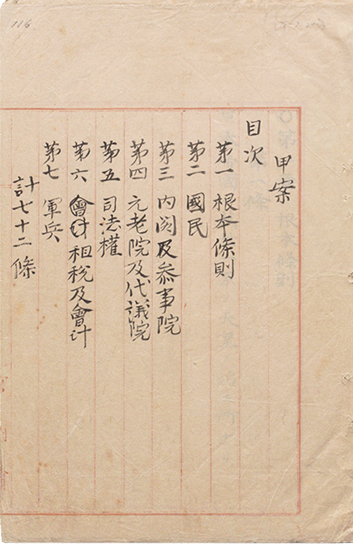 甲案
目次
第一 根本條則
第二 國民
第三 内閣及参事院
第四 元老院及代議院
第五 司法權
第六 租税及會計
第七 軍兵
計七十二條
116